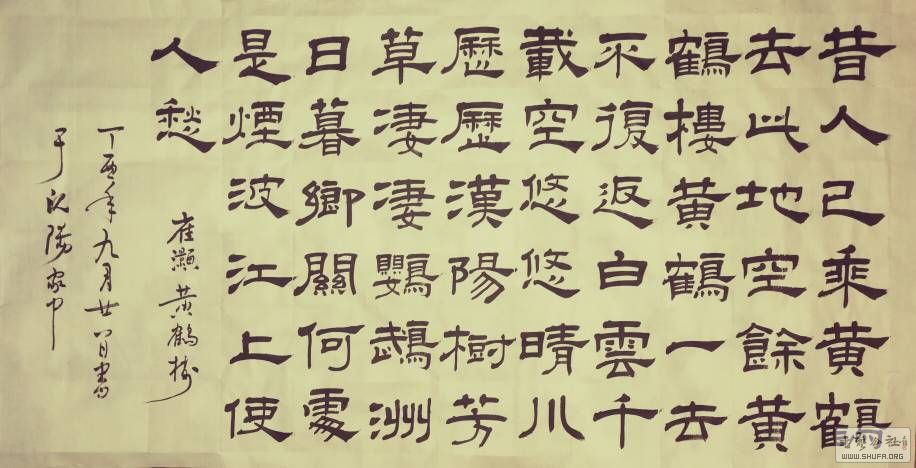 昔人已乘黄鶴
去此地空餘黄
鶴樓黄鶴一去
不復返白雲千
載空悠悠晴川
歷歷漢陽樹芳
草凄凄鸚鵡洲
日暮鄉關何處
是煙波江上使
人愁
崔灝黄鶴樓
丁酉年九月廿八日書
于沈陽家中
WWW.SHUFA.ORG